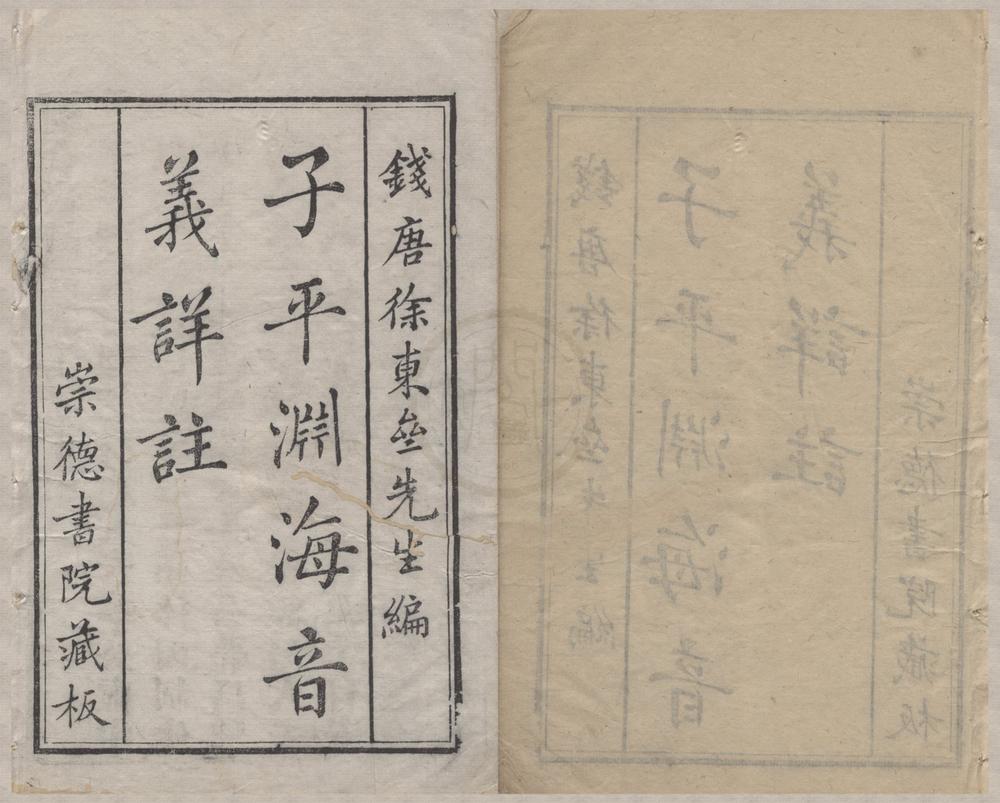 錢唐徐東㕘先生編
子平淵海音
義詳註
崇德書院藏板